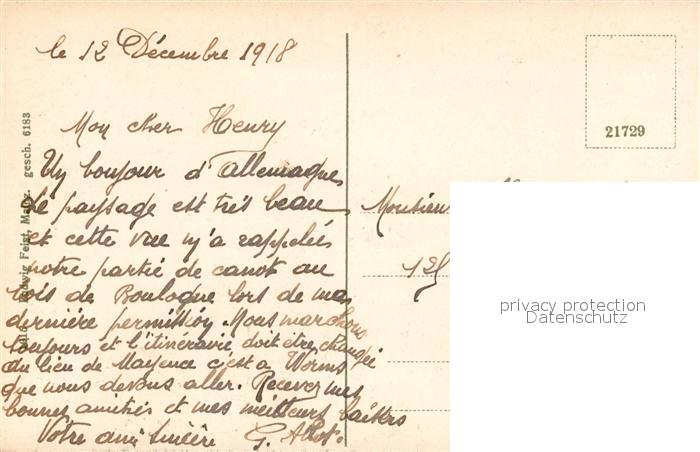 le 12 Décembre 1918
Mon cher Henry
Un bonjour d'Allemagne
Le paysage est très beau
et cette vue m'a rappelée
notre partie de canot au
bois de Boulogne lors de ma
dernière permission. Nous marchons
toujours et l'itinéraire doit être changé
au lieu de Mayence c'est a Worms
que nous devons aller. Recevez mes
bonnes amitiés et mes meilleurs baisers
Votre ami sincère G.
Ludwig Feist, Mainz. gesch. 6183
21729
Monsieur
125
privacy protection
Datenschutz